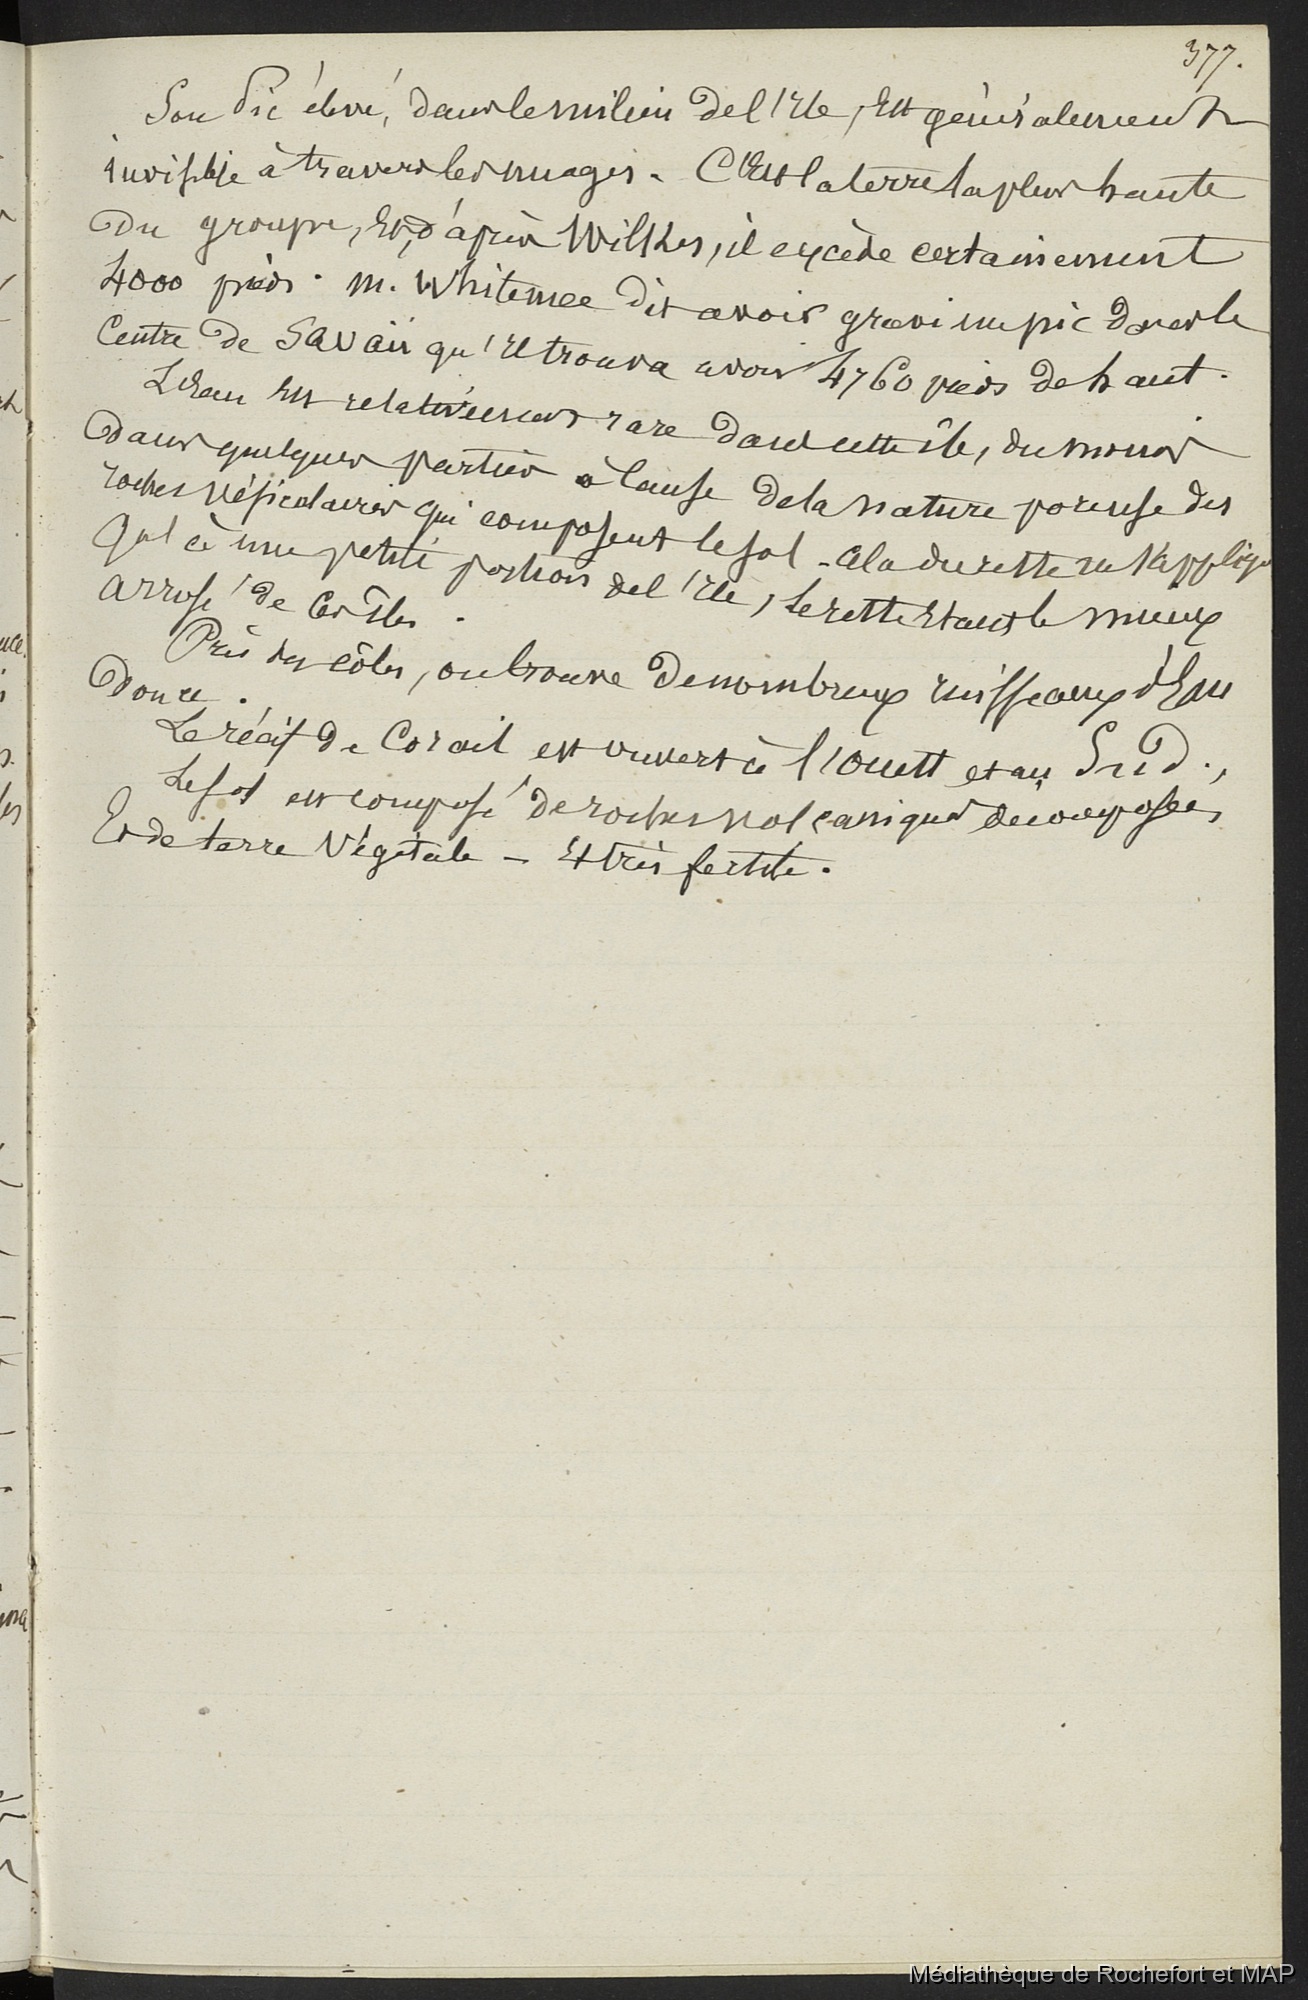 377.
Son Pic élevé, dans le milieu de l'Ile, Est généralement
invisible à travers les nuages. C'Est la terre la plus haute
Du groupe, Et, d'après Wilkes, il excède certainement
4000 pieds. M. Whitemee dit avoir gravi un pic dans le
Centre de Savaïi qu'Il trouva avoir 4760 pieds de haut.
L'Eau Est relativement rare dans cette île, du moins
Dans quelques parties à Cause de la nature poreuse des
roches vésiculaires qui composent le sol - Cela du reste ne s'applique
Qu'à une petite portion de l'Ile, le reste Etant le mieux
arrosé de Ces Iles.
Près des côtes, on trouve de nombreux ruisseaux d'Eau
Douce.
Le récif de Corail est ouvert à l'Ouest et au Sud.,
Le sol est composé de roches volcaniques décomposées,
Et de terre Végétale - Et très fertile.
Médiathèque de Rochefort et MAP